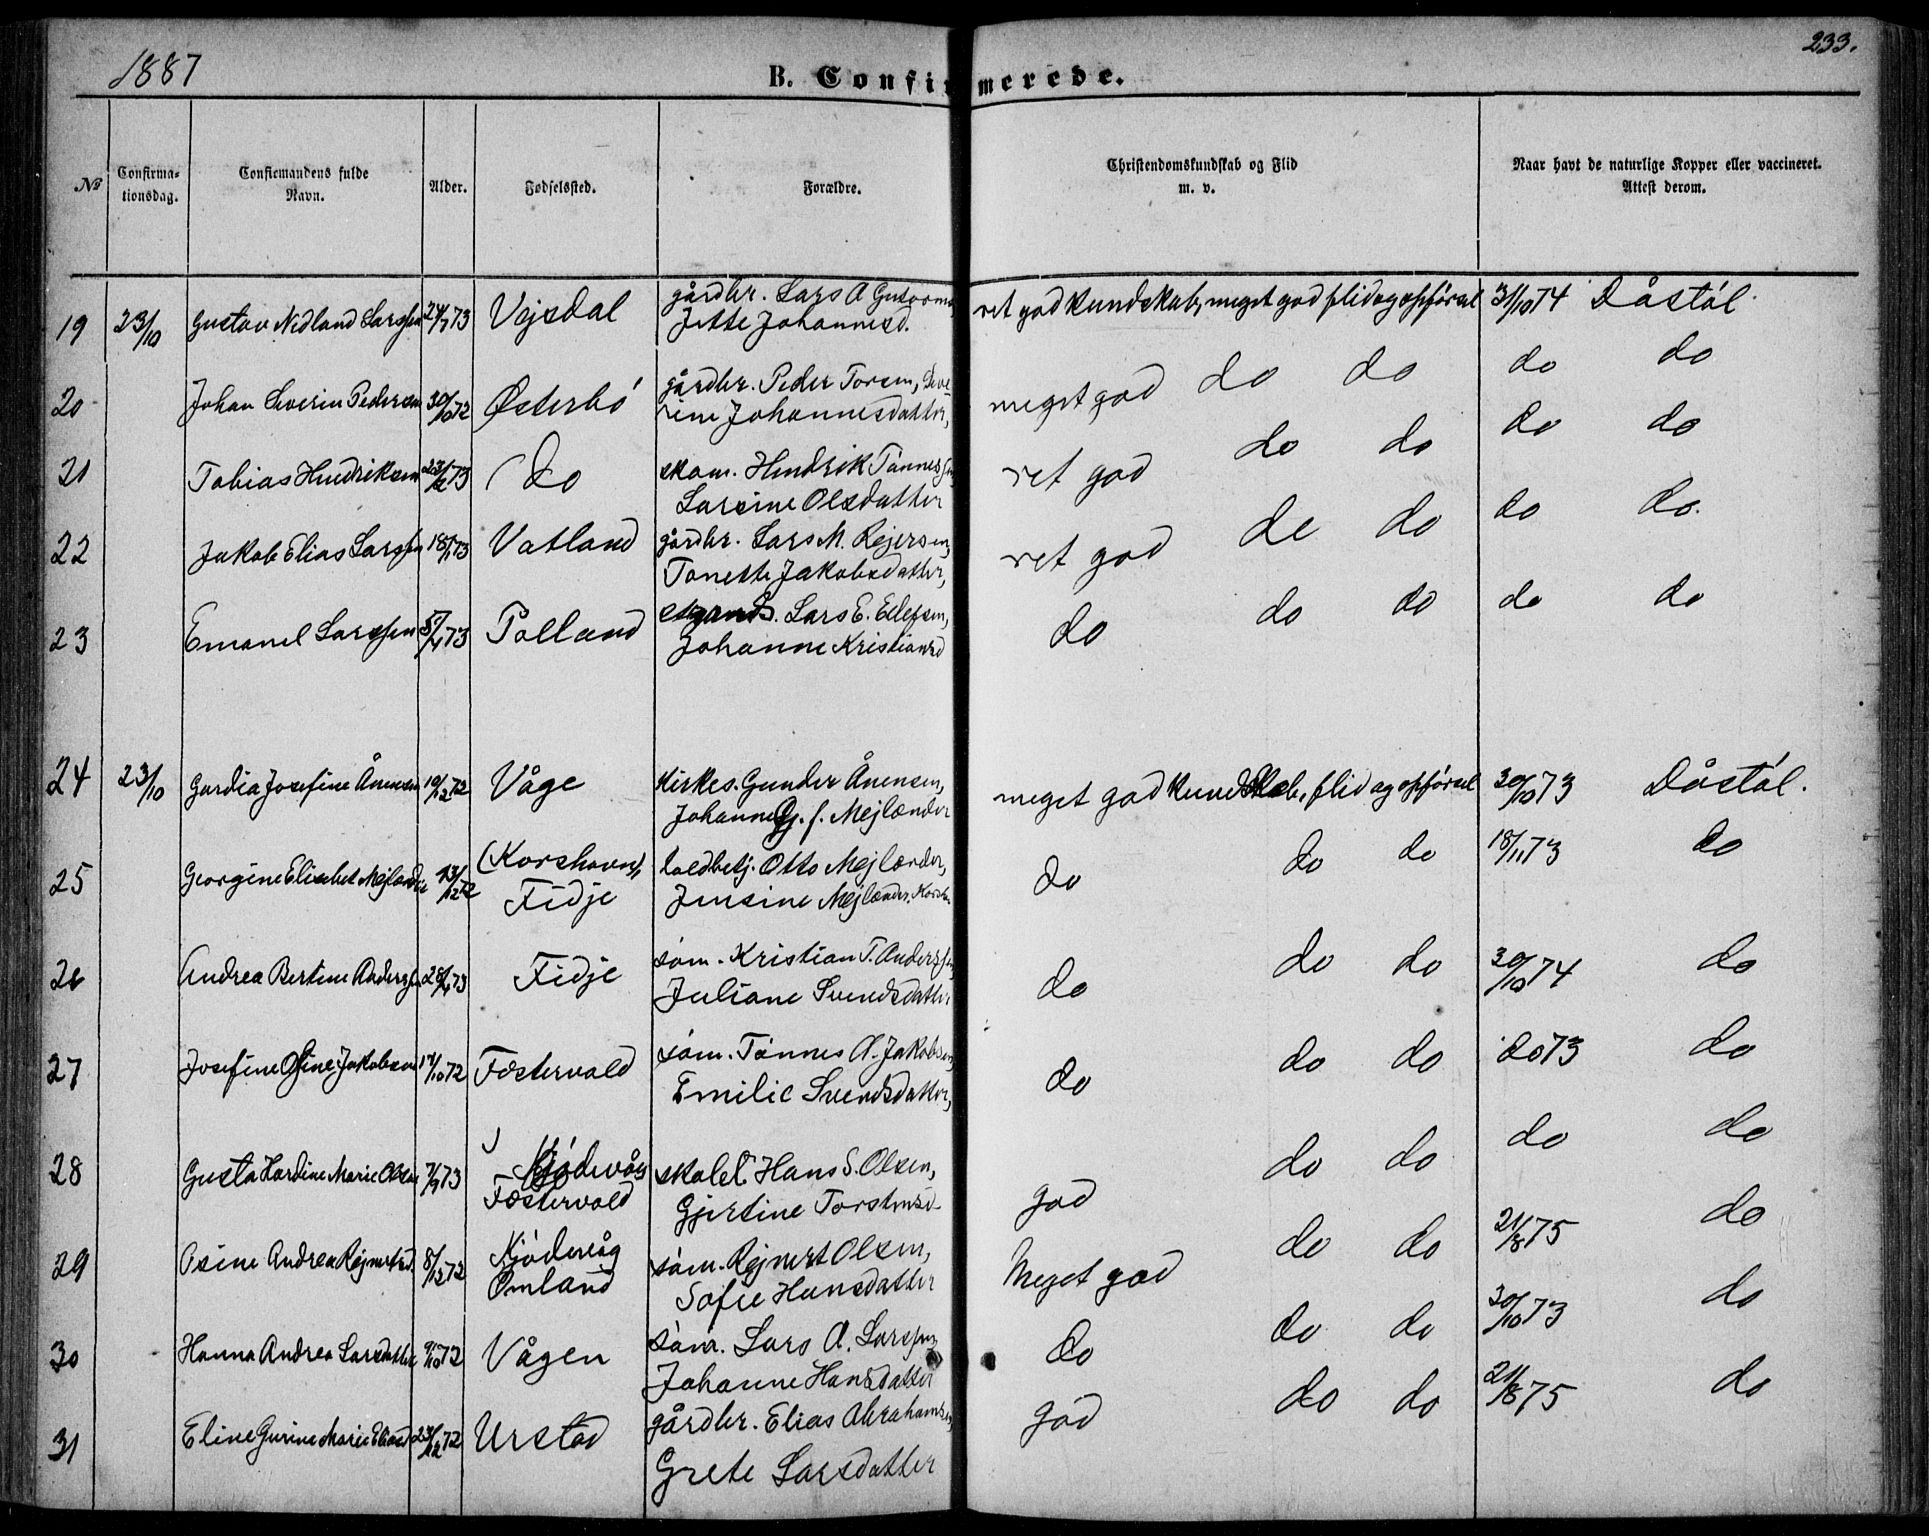 1887
233.
B. Confirmerede.
№
Confirma-
tionsdag.
Confirmandens fulde
Navn.
Alder.
Fødselssted.
Forældre.
Christendomskundskab og Flid
m. v.
Naar havt de naturlige Kopper eller vaccineret.
Attest derom.
19 23/10 Gustav Nedland Larssen 24/7 73 Vejsdal gårdbr. Lars A Guttorms ret god kundskab, meget god flid og opførsel 31/10 74 Dåstøl.
Jette Johannesd.
20 Johan Severin Pedersen 30/10 72 Østerbø gårdbr. Peder Torsen, Seve- meget god do do do do
rine Johannesdatter,
21 Tobias Hendriksen 23/2 73 do skom. Hendrik Tønnessen ret god do do do do
Larsine Olsdatter
22 Jakob Elias Larssen 18/1 73 Vatland gårdbr. Lars M. Rejersen, ret god do do do do.
Tonette Jakobsdatter,
23 Emanel Larssen 5/4 73 Polland Lars E. Ellefsen, do do do do do
Johanne Kristiansd
24 23/10 Gurdia Josefine Ånensen 10/12 72 Våge Kirkes. Gunder Ånensen, meget god kundskab, flid og opførsel 30/10 73 Dåstøl.
Johanne G. f. Mejlænder
25 Georgine Elisabet Mejlænder 13/12 72 (Korshavn), Fidje toldbetj. Otto Mejlænder, do do do 18/11 73 do
Jensine Mejlænder.
26 Andrea Bertine Anderssen 28/4 73 Fidje søm. Kristian T. Anderssen do do do 30/10 74 do
Juliane Svendsdatter
27 Josefine Jakobsen 17/10 72 Fæstervold søm. Tønnes A. Jakobsen, do do do do 73 do
Emilie Svendsdatter,
28 Gusta Hardine Marie Olsen 7/7 73 Kjødevåg Fæstervold skolel. Hans S. Olsen, god do do do do
Gjertine Torstensd
29 Osine Andrea Rejnertsd. 8/12 72 Kjødevåg Omland søm. Rejnert Olsen, Meget god do do 21/8 75 do
Sofie Hansdatter
30 Hanna Andrea Larsdatter 9/10 72 Vågen søm. Lars A. Larssen, do do do 30/10 73 do
Johanne Hansdatter
31 Eline Gurine Marie Eliasd 23/12 72 Urstad gårdbr. Elias Abrahamsen god do do 21/8 75 do
Grete Larsdatter